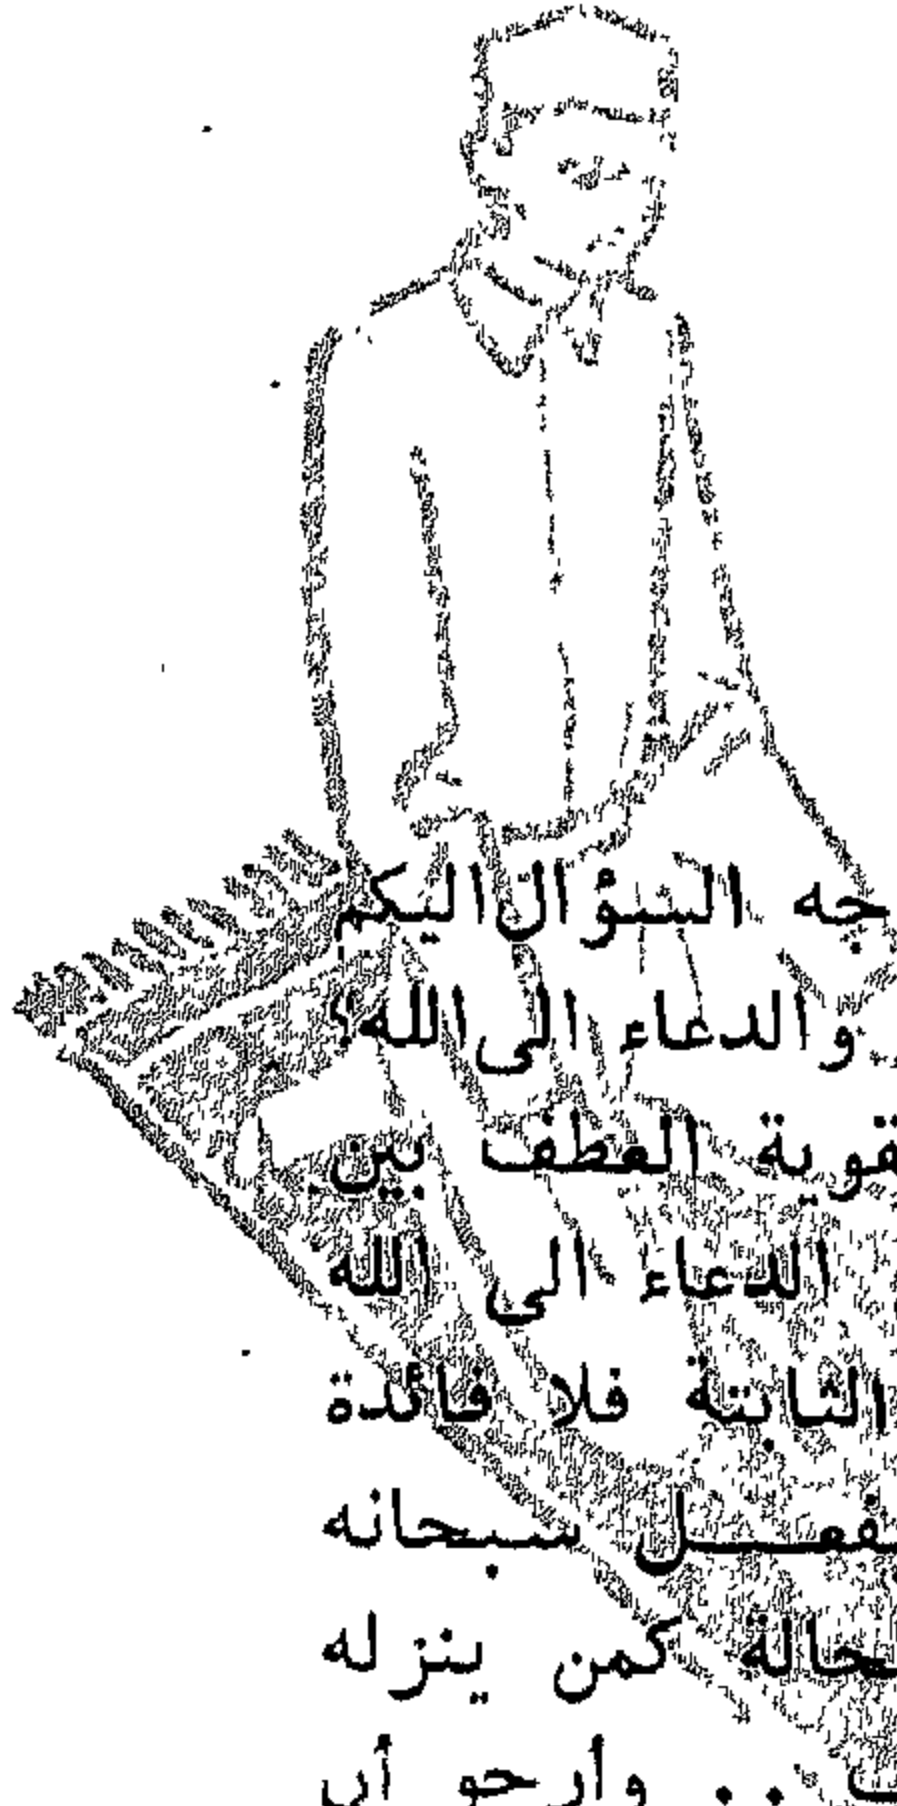 جه السؤال اليكم
والدعاء الى الله؟
قوية العطف بين
الدعاء الى الله
الثابتة فلا فائدة
يفعل سبحانه
لحالة كمن ينزله
وأرجو أن